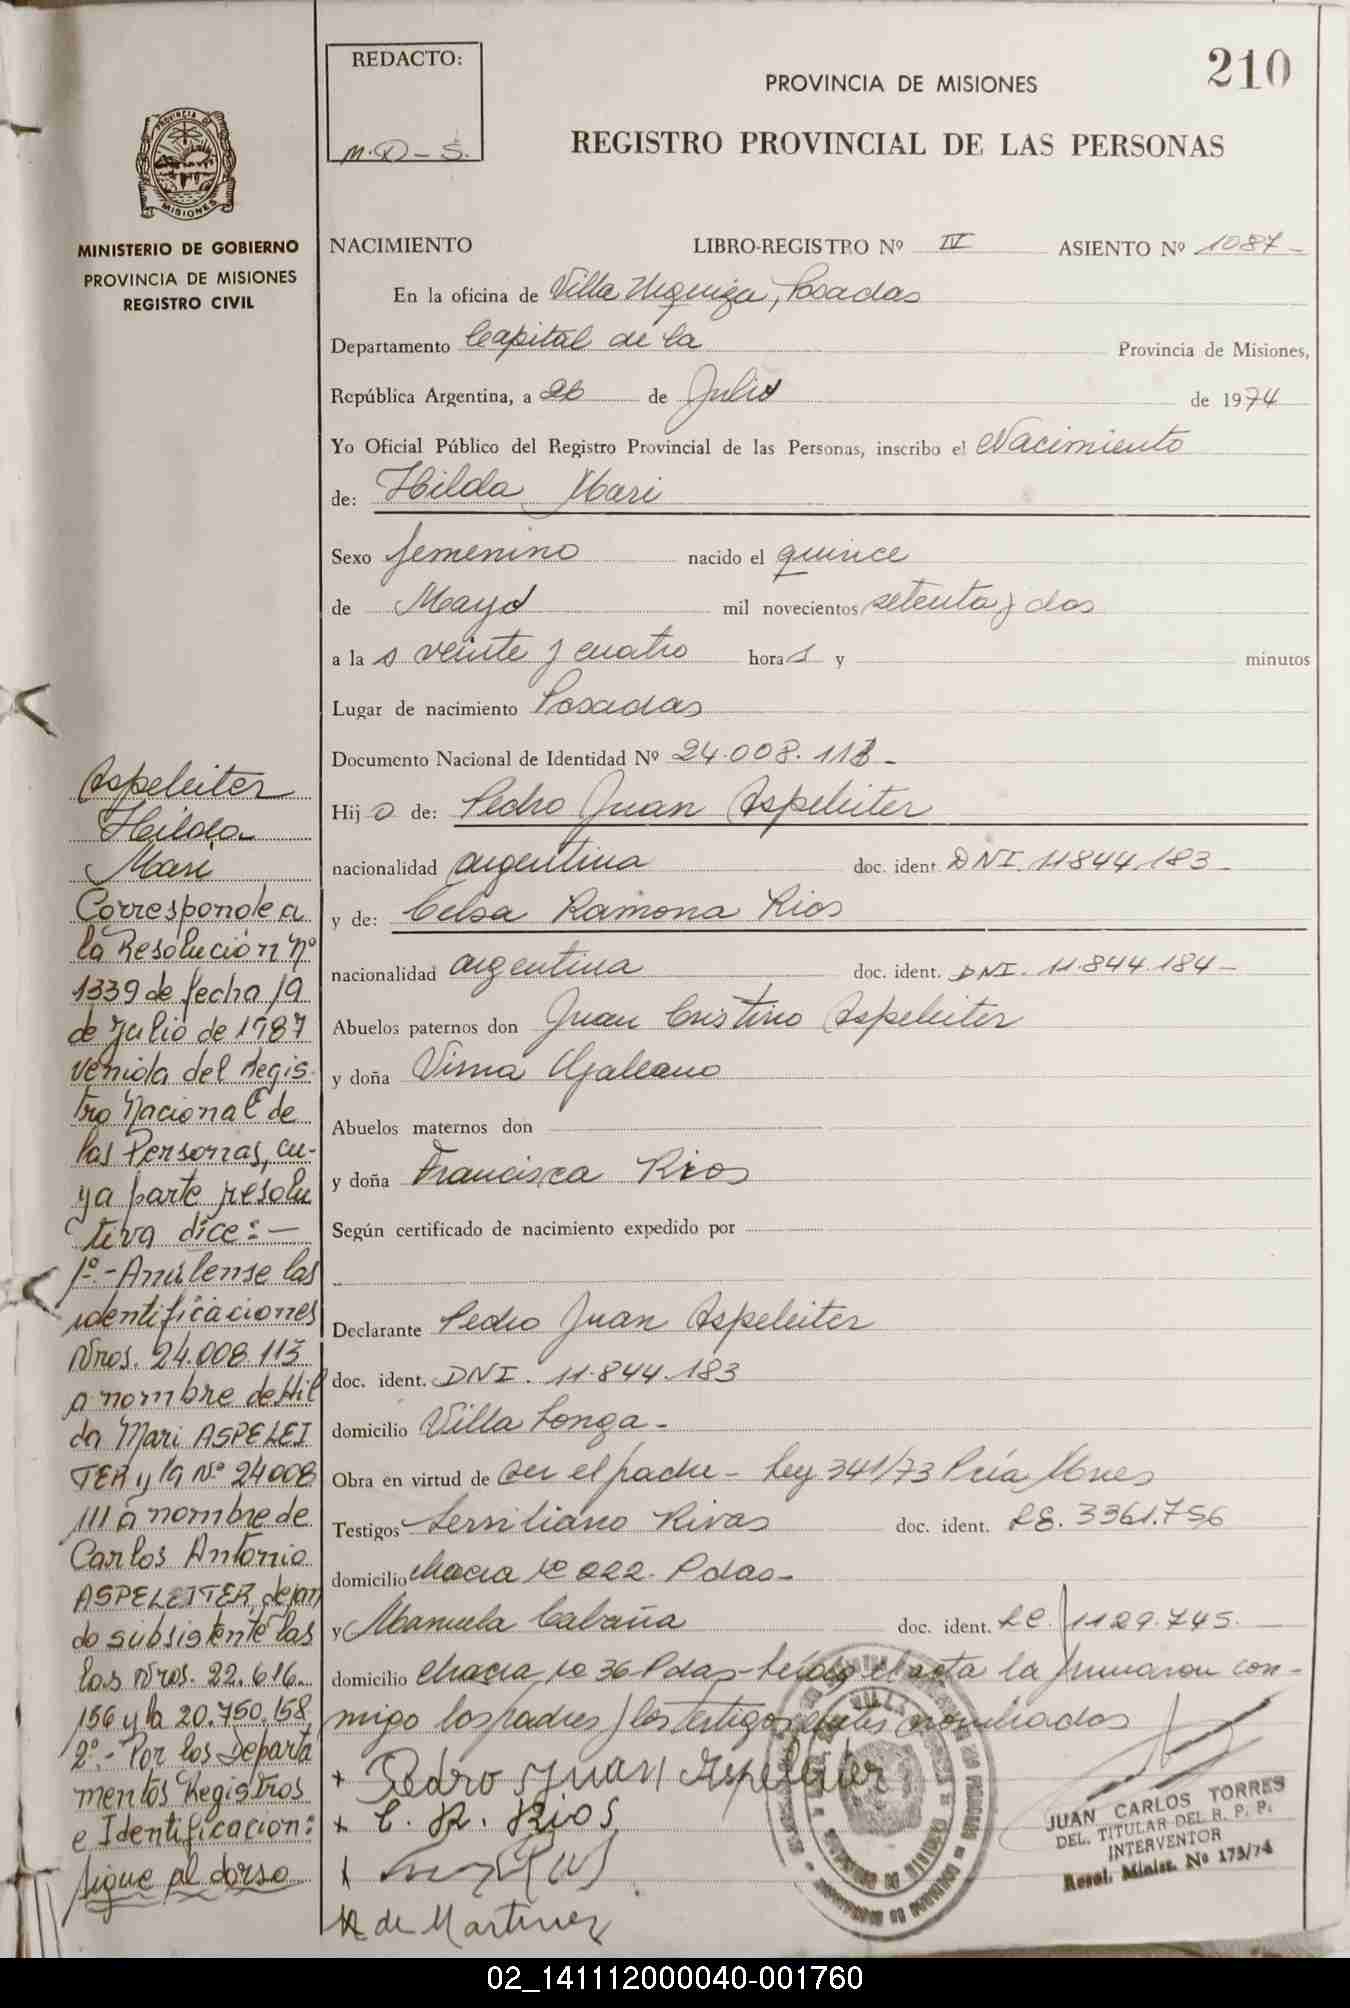 REDACTO:
M.D-S.
210
PROVINCIA DE MISIONES
REGISTRO PROVINCIAL DE LAS PERSONAS
PROVINCIA DE
MISIONES
MINISTERIO DE GOBIERNO
PROVINCIA DE MISIONES
REGISTRO CIVIL
NACIMIENTO LIBRO-REGISTRO Nº IV ASIENTO Nº 1087-
En la oficina de Villa Urquiza, Posadas
Departamento Capital de la Provincia de Misiones,
República Argentina, a 26 de Julio de 1974
Yo Oficial Público del Registro Provincial de las Personas, inscribo el Nacimiento
de: Hilda Mari
Sexo femenino nacido el quince
de Mayo mil novecientos setenta y dos
a la s veinte y cuatro hora s y minutos
Lugar de nacimiento Posadas
Documento Nacional de Identidad Nº 24.008.113-
Hij a de: Pedro Juan Aspeleiter
nacionalidad argentina doc. ident. DNI. 11.844.183-
y de: Celsa Ramona Rios
nacionalidad argentina doc. ident. DNI. 11.844.184-
Abuelos paternos don Juan Cristino Aspeleiter
y doña Virna Galeano
Abuelos maternos don
y doña Francisca Rios
Según certificado de nacimiento expedido por
Declarante Pedro Juan Aspeleiter
doc. ident. DNI. 11.844.183
domicilio Villa Longa-
Obra en virtud de ser el padre - Ley 341/73 Pcia Mnes
Testigos Rivas doc. ident. 3361.756
domicilio chacra 022. Pdas-
y Manuela Cabaña doc. ident. LC. 1129.745.
domicilio chacra 36-Pdas- Leida el acta la firmaron con-
migo los padres y los testigos
+ Pedro Juan Aspeleiter
+ C. R. Rios
de Martinez
JUAN CARLOS TORRES
DEL. TITULAR DEL R. P. P.
INTERVENTOR
Resol. Minist. Nº 173/74
Aspeleiter
Hilda
Mari
Corresponde a
la Resolución Nº
1339 de fecha 19
de Julio de 1987
venida del Regis-
tro Nacional de
las Personas, cu-
ya parte resolu
tiva dice:-
1º.-Anúlense las
identificaciones
Nros. 24.008.113
a nombre de Hil
da Mari ASPELEI
TER y la Nº 24008
111 a nombre de
Carlos Antonio
ASPELEITER, dejan
do subsistente las
las Nros. 22.616.
156 y la 20.750.158
2º.-Por los Departa
mentos Registros
e Identificacion:
sigue al dorso
02_141112000040-001760